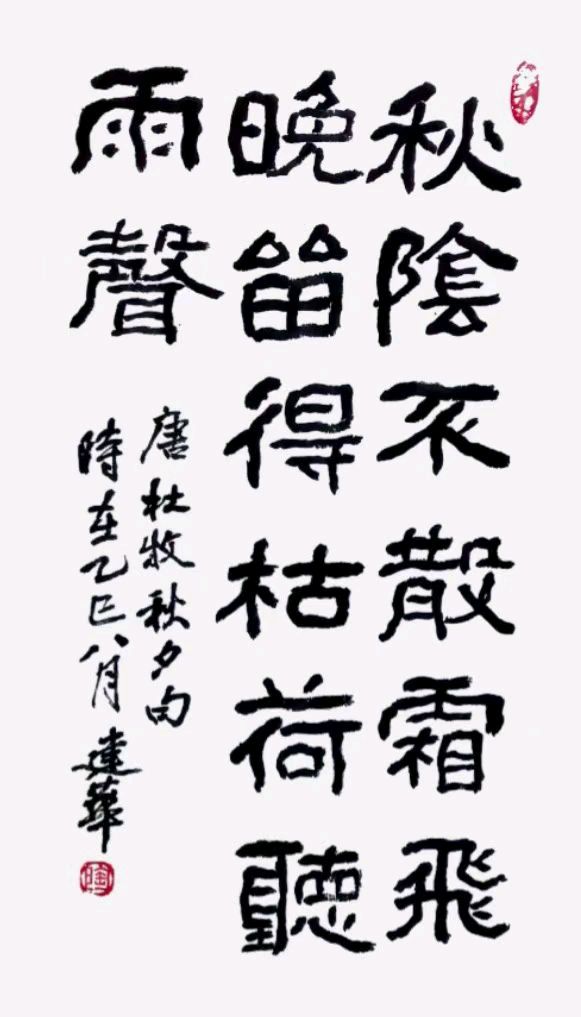 秋陰不散霜飛
晚留得枯荷聽
雨聲
唐杜牧秋夕句
時在乙巳八月建華
陶